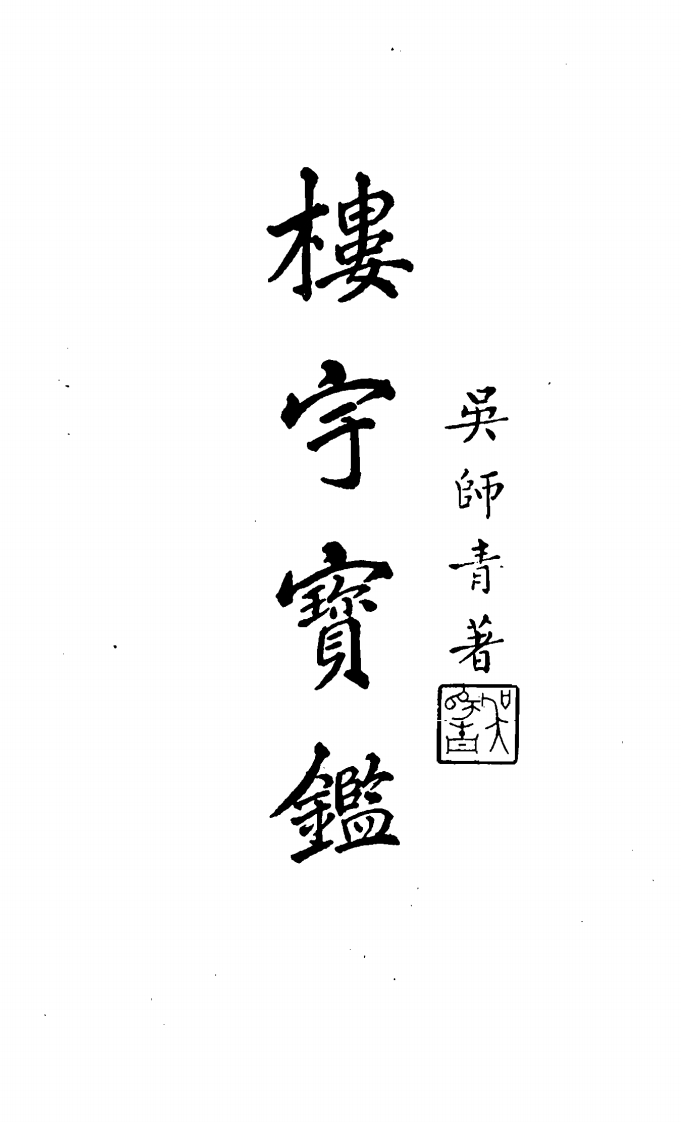 吳師青著
樓宇寶鑑